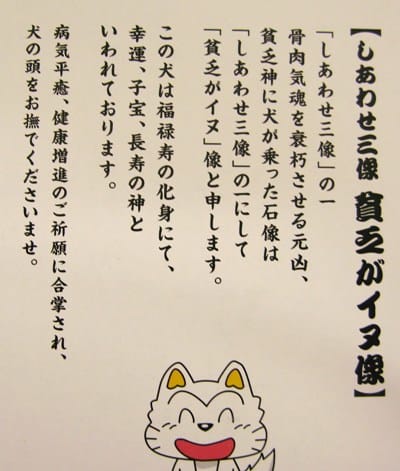 【しあわせ三像 貧乏がイヌ像】
「しあわせ三像」の一
骨肉気魂を衰朽させる元凶、
貧乏神に犬が乗った石像は
「しあわせ三像」の一にして
「貧乏がイヌ」像と申します。
この犬は福禄寿の化身にて、
幸運、子宝、長寿の神と
いわれております。
病気平癒、健康増進のご祈願に合掌され、
犬の頭をお撫でくださいませ。